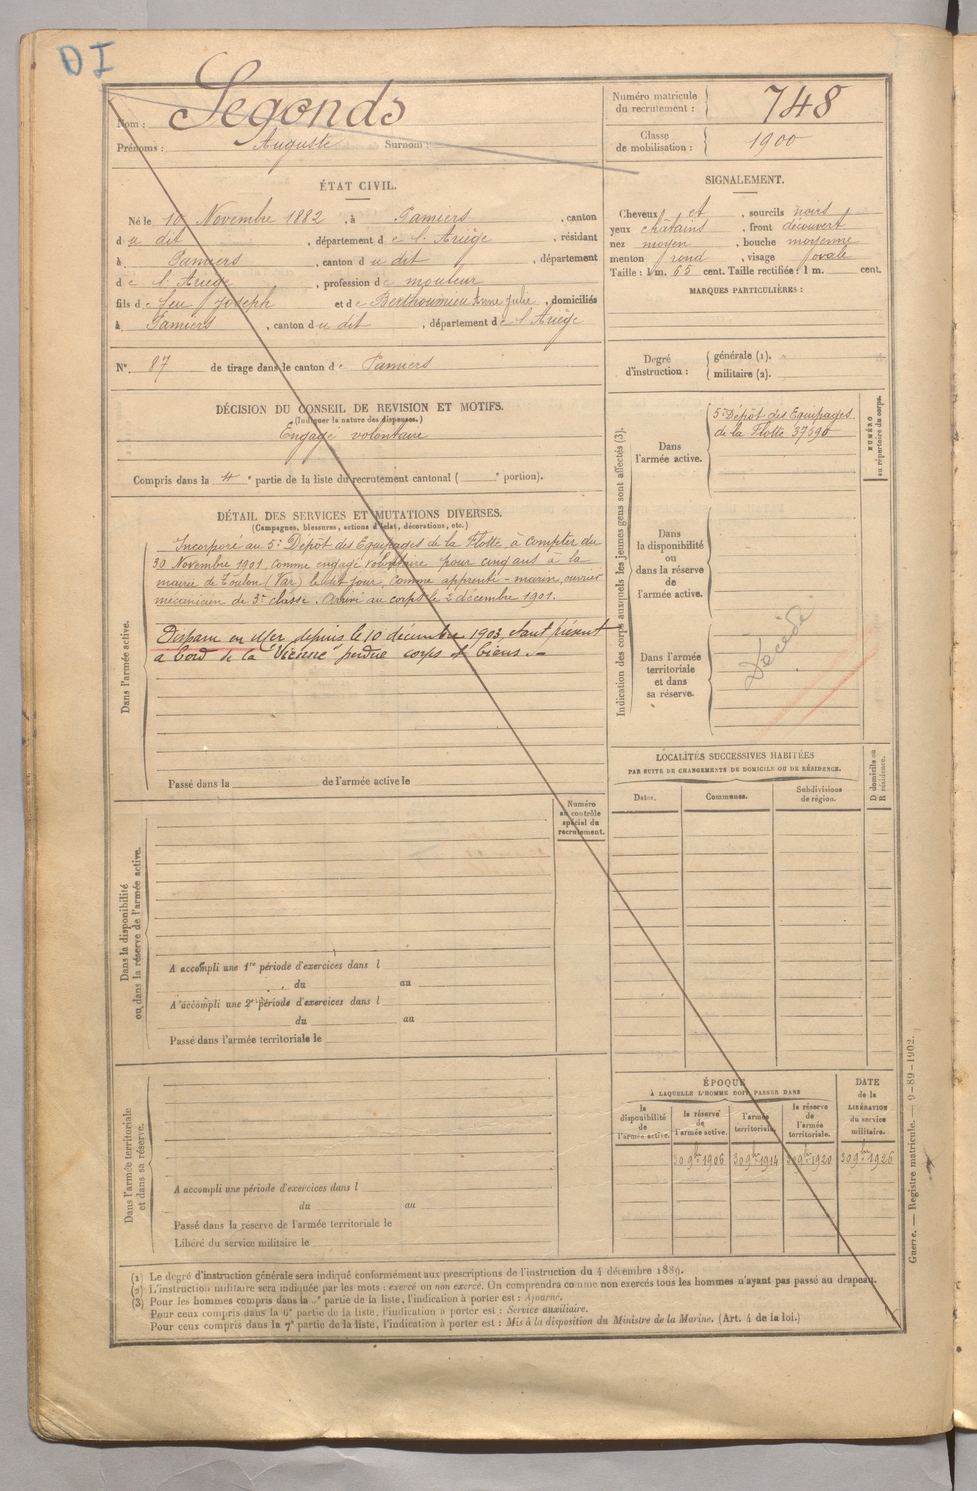 DI
Nom : Segonds
Prénoms : Auguste Surnom :
Numéro matricule du recrutement : 748
Classe de mobilisation : 1900
ÉTAT CIVIL.
Né le 10 Novembre 1882, à Pamiers, canton
du dit, département de l'Ariège, résidant
à Pamiers, canton du dit, département
de l'Ariège, profession de mouleur
fils de feu Joseph et de Berthoumieu Anne Julie, domiciliés
à Pamiers, canton du dit, département de l'Ariège
N° 87 de tirage dans le canton de Pamiers
SIGNALEMENT.
Cheveux et, sourcils noirs
yeux châtains, front découvert
nez moyen, bouche moyenne
menton rond, visage ovale
Taille : 1 m. 65 cent. Taille rectifiée : 1 m. cent.
MARQUES PARTICULIÈRES :
Degré d'instruction : générale (1).
militaire (2).
DÉCISION DU CONSEIL DE REVISION ET MOTIFS.
(Indiquer la nature des dispenses.)
Engagé volontaire
Compris dans la 4e partie de la liste du recrutement cantonal ( e portion).
DÉTAIL DES SERVICES ET MUTATIONS DIVERSES.
(Campagnes, blessures, actions d'éclat, décorations, etc.)
Dans l'armée active.
Incorporé au 5e Dépôt des Equipages de la Flotte à compter du
30 Novembre 1901, comme engagé volontaire pour cinq ans à la
mairie de Toulon (Var) le dit jour, comme apprenti-marin, ouvrier
mécanicien de 3e classe. Arrivé au corps le 2 décembre 1901.
Disparu en Mer depuis le 10 décembre 1903, étant présent
à bord de la "Vienne" perdue corps et biens.
Passé dans la de l'armée active le
Indication des corps auxquels les jeunes gens sont affectés (3).
Dans l'armée active.
5e Dépôt des Equipages
de la Flotte 37590
NUMÉRO au répertoire du corps.
Dans la disponibilité ou dans la réserve de l'armée active.
Dans l'armée territoriale et dans sa réserve.
Décédé
LOCALITÉS SUCCESSIVES HABITÉES
PAR SUITE DE CHANGEMENTS DE DOMICILE OU DE RÉSIDENCE.
Dates. Communes. Subdivisions de région. D domicile ou R résidence.
Numéro au contrôle spécial du recrutement.
Dans la disponibilité ou dans la réserve de l'armée active.
A accompli une 1re période d'exercices dans l
du au
A accompli une 2e période d'exercices dans l
du au
Passé dans l'armée territoriale le
Dans l'armée territoriale et dans sa réserve.
A accompli une période d'exercices dans l
du au
Passé dans la réserve de l'armée territoriale le
Libéré du service militaire le
ÉPOQUE
À LAQUELLE L'HOMME DOIT PASSER DANS
la disponibilité de l'armée active.
la réserve de l'armée active.
l'armée territoriale.
la réserve de l'armée territoriale.
DATE de la LIBÉRATION du service militaire.
30 9bre 1906 30 9bre 1914 30 9bre 1920 30 9bre 1926
Guerre. — Registre matricule. — 9-89-1902.
(1) Le degré d'instruction générale sera indiqué conformément aux prescriptions de l'instruction du 4 décembre 1889.
(2) L'instruction militaire sera indiquée par les mots : exercé ou non exercé. On comprendra comme non exercés tous les hommes n'ayant pas passé au drapeau.
(3) Pour les hommes compris dans la partie de la liste, l'indication à porter est : Ajourné.
Pour ceux compris dans la 6e partie de la liste, l'indication à porter est : Service auxiliaire.
Pour ceux compris dans la 7e partie de la liste, l'indication à porter est : Mis à la disposition du Ministre de la Marine. (Art. 4 de la loi.)